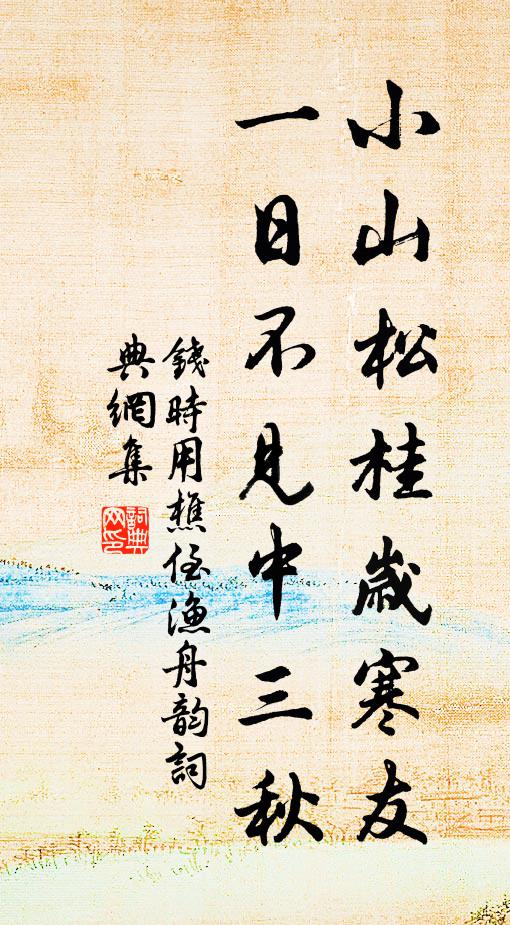 小山松桂歲寒友
一日不見中三秋
錢時用樵侄漁舟韵詞
典網集
詞典
网印